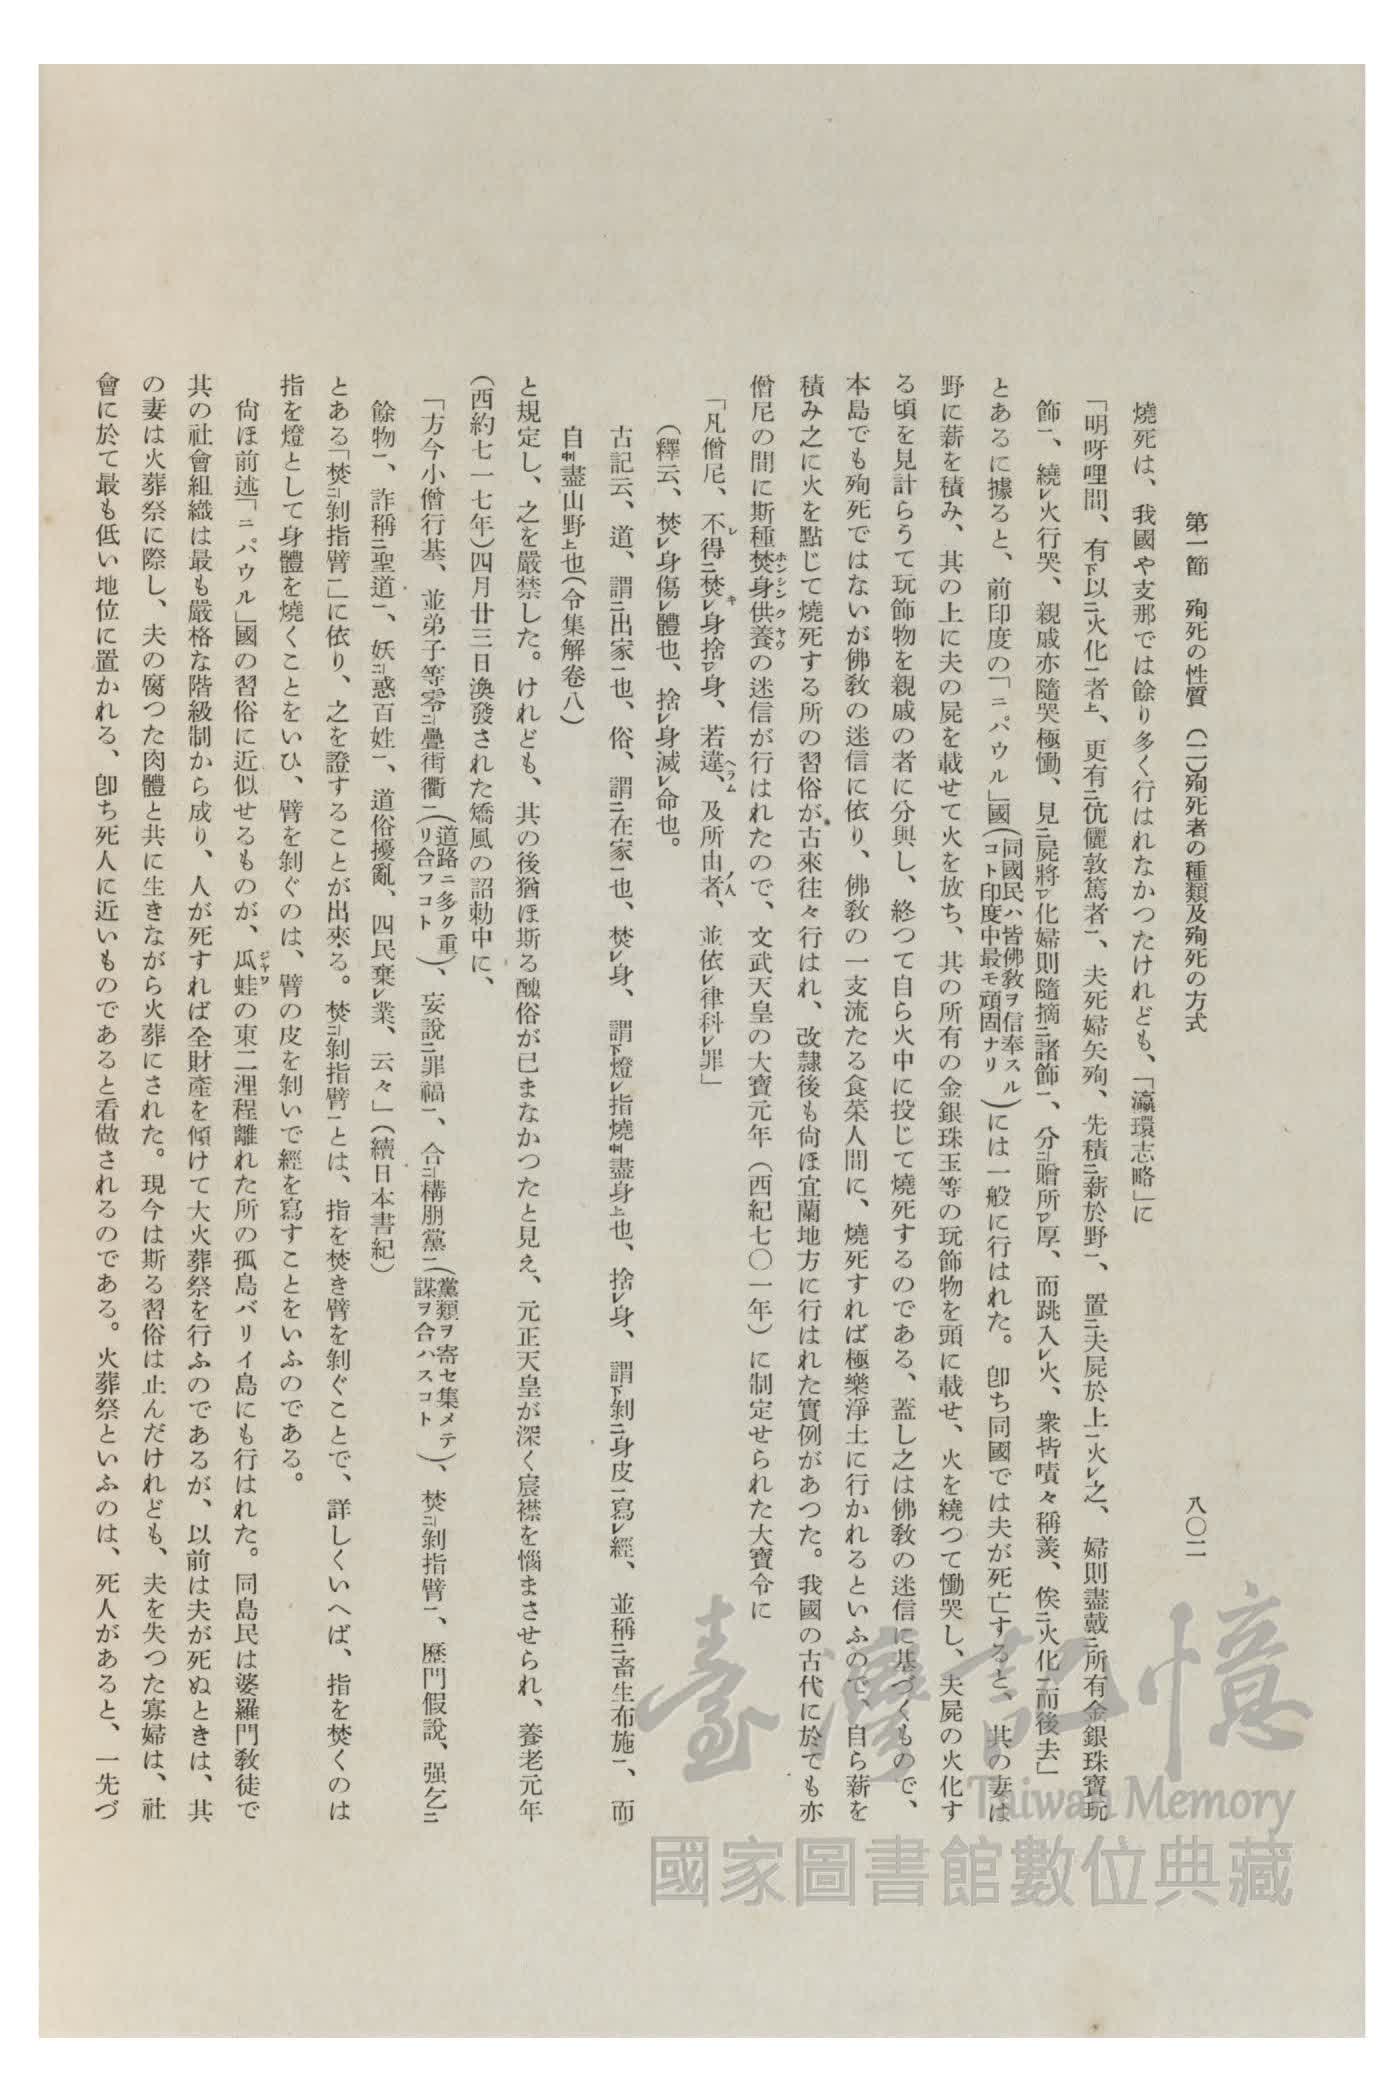 第一節　殉死の性質　(二)殉死者の種類及殉死の方式　八〇二
燒死は、我國や支那では餘り多く行はれなかつたけれども、「瀛環志略」に
「明呀哩間、有下以二火化一者上、更有二伉儷敦篤者一、夫死婦矢殉、先積二薪於野一、置二夫屍於上一火レ之、婦則盡戴二所有金銀珠寶玩
飾一、繞レ火行哭、親戚亦隨哭極慟、見二屍將一レ化婦則隨摘二諸飾一、分二贈所一レ厚、而跳入レ火、衆皆嘖々稱羨、俟二火化一而後去」
とあるに據ると、前印度の「ニパウル」國(同國民ハ皆佛敎ヲ信奉スルコト印度中最モ頑固ナリ)には一般に行はれた。卽ち同國では夫が死亡すると、其の妻は
野に薪を積み、其の上に夫の屍を載せて火を放ち、其の所有の金銀珠玉等の玩飾物を頭に載せ、火を繞つて慟哭し、夫屍の火化す
る頃を見計らうて玩飾物を親戚の者に分與し、終つて自ら火中に投じて燒死するのである、蓋し之は佛敎の迷信に基づくもので、
本島でも殉死ではないが佛敎の迷信に依り、佛敎の一支流たる食菜人間に、燒死すれば極樂淨土に行かれるといふので、自ら薪を
積み之に火を點じて燒死する所の習俗が古來往々行はれ、改隷後も尙ほ宜蘭地方に行はれた實例があつた。我國の古代に於ても亦
僧尼の間に斯種焚身供養ホンシンクヤウの迷信が行はれたので、文武天皇の大寶元年(西紀七〇一年)に制定せられた大寶令に
「凡僧尼、不レ得二焚レキ身捨一レ身、若違ヘラム、及所由者ノ人、並依レ律科レ罪」
(釋云、焚レ身傷レ體也、捨レ身滅レ命也。
古記云、道、謂二出家一也、俗、謂二在家一也、焚レ身、謂下燈レ指燒中盡身上也、捨レ身、謂下剝二身皮一寫レ經、並稱二畜生布施一、而
自中盡山野上也(令集解卷八)
と規定し、之を嚴禁した。けれども、其の後猶ほ斯る醜俗が已まなかつたと見え、元正天皇が深く宸襟を惱まさせられ、養老元年
(西約七一七年)四月廿三日渙發された矯風の詔勅中に、
「方今小僧行基、並弟子等零二疊街衢一(道路ニ多ク重リ合フコト)、妄說二罪福一、合二構朋黨一(黨類ヲ寄セ集メテ謀ヲ合ハスコト)、焚二剝指臂一、歷門假說、强乞二
餘物一、詐稱二聖道一、妖二惑百姓一、道俗擾亂、四民棄レ業、云々」(續日本書紀)
とある「焚二剝指臂一」に依り、之を證することが出來る。焚二剝指臂一とは、指を焚き臂を剝ぐことで、詳しくいへば、指を焚くのは
指を燈として身體を燒くことをいひ、臂を剝ぐのは、臂の皮を剝いで經を寫すことをいふのである。
尙ほ前述「ニパウル」國の習俗に近似せるものが、瓜蛙ジヤワの東二浬程離れた所の孤島バリイ島にも行はれた。同島民は婆羅門敎徒で
其の社會組織は最も嚴格な階級制から成り、人が死すれば全財產を傾けて大火葬祭を行ふのであるが、以前は夫が死ぬときは、其
の妻は火葬祭に際し、夫の腐つた肉體と共に生きながら火葬にされた。現今は斯る習俗は止んだけれども、夫を失つた寡婦は、社
會に於て最も低い地位に置かれる、卽ち死人に近いものであると看做されるのである。火葬祭といふのは、死人があると、一先づ
臺灣記憶
Taiwan Memory
國家圖書館數位典藏